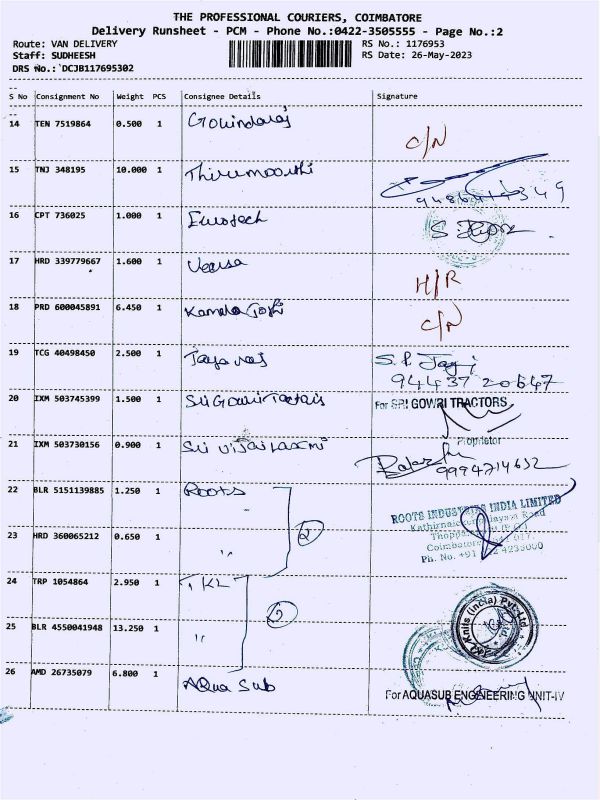 THE PROFESSIONAL COURIERS, COIMBATORE
Delivery Runsheet - PCM - Phone No.:0422-3505555 - Page No.:2
Route: VAN DELIVERY RS No.: 1176953
Staff: SUDHEESH RS Date: 26-May-2023
DRS No.: DCJB117695302
S No Consignment No Weight PCS Consignee Details Signature
14 TEN 7519864 0.500 1 Govindaraj C/N
15 TNJ 348195 10.000 1 Thirumoorthi
16 CPT 736025 1.000 1 Eurotech
17 HRD 339779667 1.600 1 H/R
18 PRD 600045891 6.450 1 Kamala Joshi C/N
19 TCG 40498450 2.500 1 Jayaraj
9443720647
20 IXM 503745399 1.500 1 Sri Gowri Tractors For SRI GOWRI TRACTORS
Proprietor
21 IXM 503730156 0.900 1 Sri Vijai Laxmi 9994714632
22 BLR 5151139885 1.250 1 Roots ROOTS INDUSTRIES INDIA LIMITED
23 HRD 360065212 0.650 1 " 2
Ph. No. +91
24 TRP 1054864 2.950 1 TKL
25 BLR 4550041948 13.250 1 " Knits (India) Pvt. Ltd
26 AMD 26735079 6.800 1 Aqua Sub For AQUASUB ENGINEERING UNIT-IV